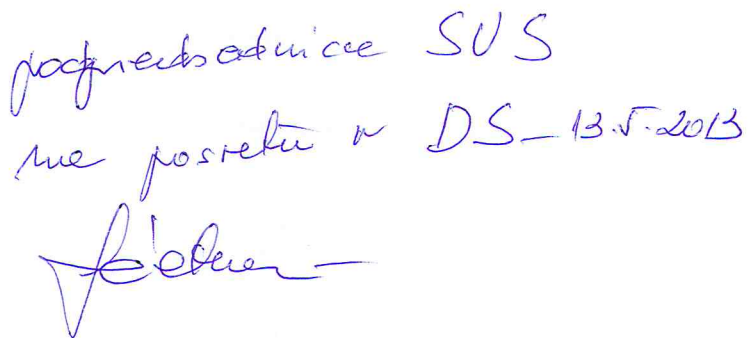 podpredsednica SVS
na posvetu v DS – 13.5.2013